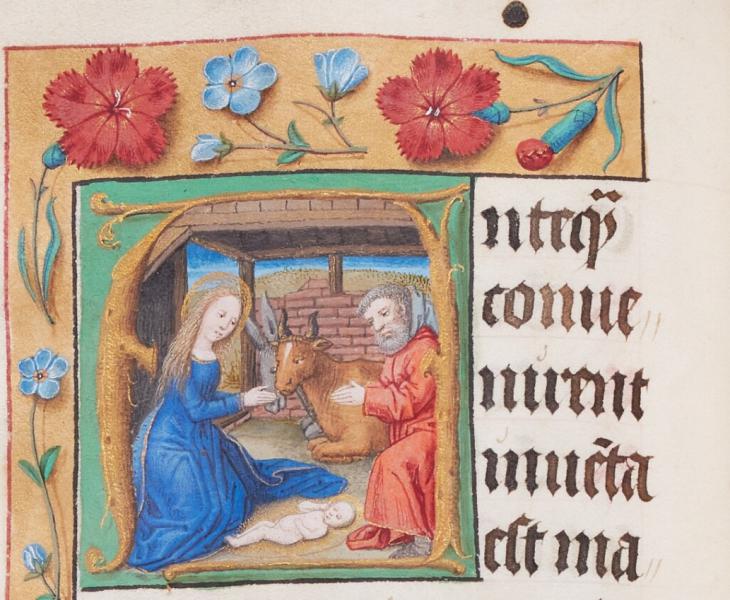 Anteq̃
conue
nirent
inuēta
eſt ma